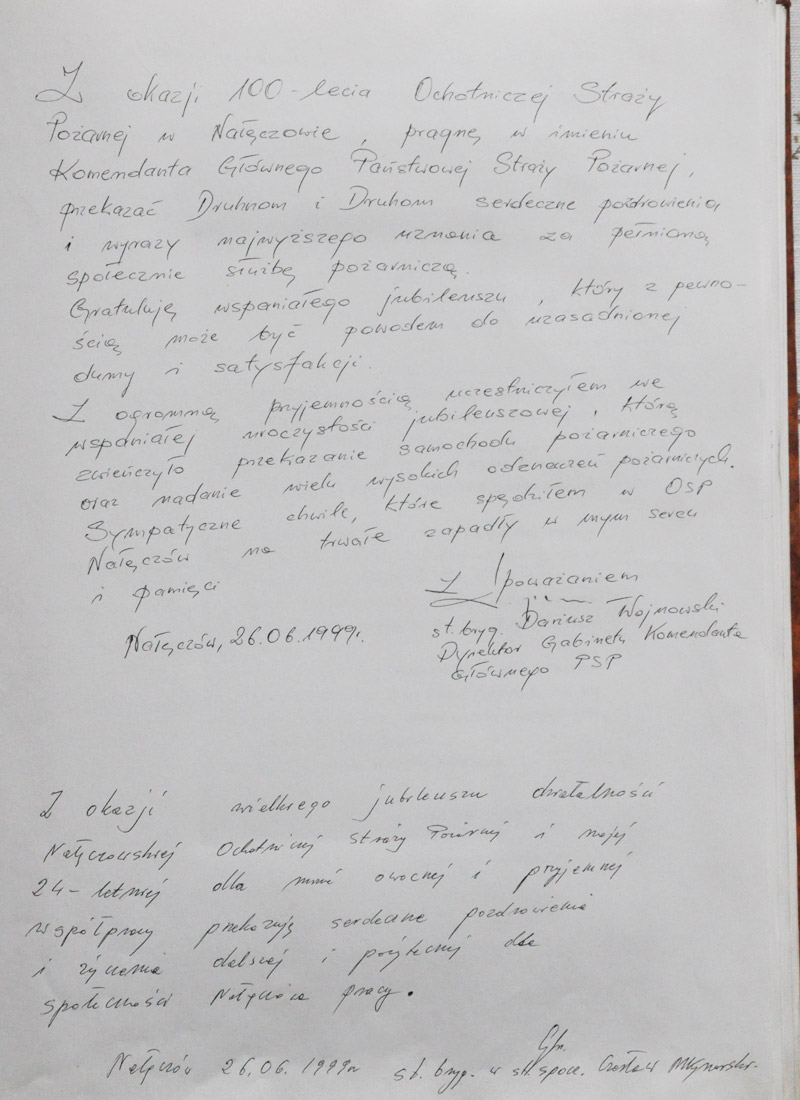 Z okazji 100-lecia Ochotniczej Straży
Pożarnej w Nałęczowie, pragnę w imieniu
Komendanta Głównego Państwowej Straży Pożarnej,
przekazać Druhnom i Druhom serdeczne pozdrowienia
i wyrazy najwyższego uznania za pełnioną
społecznie służbę pożarniczą.
Gratuluję wspaniałego jubileuszu, który z pewno-
ścią może być powodem do uzasadnionej
dumy i satysfakcji.
Z ogromną przyjemnością uczestniczyłem we
wspaniałej uroczystości jubileuszowej, którą
zwieńczyło przekazanie samochodu pożarniczego
oraz nadanie wielu wysokich odznaczeń pożarniczych.
Sympatyczne chwile, które spędziłem w OSP
Nałęczów na trwałe zapadły w mym sercu
i pamięci
Z poważaniem
st. bryg. Dariusz Wojnowski
Dyrektor Gabinetu Komendanta
Głównego PSP
Nałęczów, 26.06.1999r.
Z okazji wielkiego jubileuszu działalności
Nałęczowskiej Ochotniczej Straży Pożarnej i mojej
24-letniej dla mnie owocnej i przyjemnej
współpracy przekazuję serdeczne pozdrowienia
i życzenia dalszej i pożytecznej dla
społeczności Nałęczowa pracy.
Nałęczów 26.06.1999r
st. bryg. w st. spocz. Czesław Młynarski